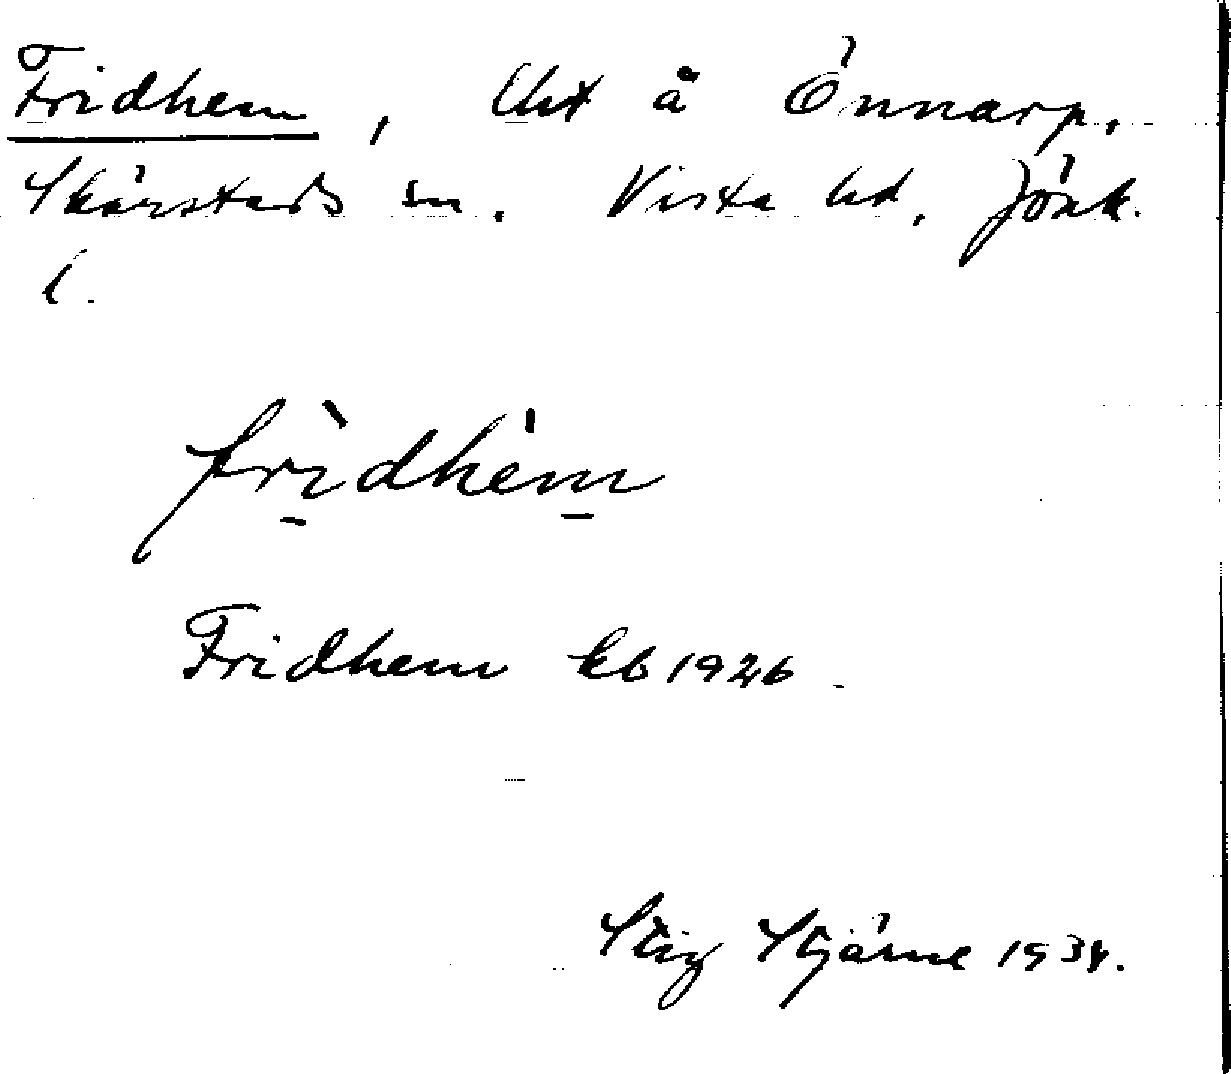 Fridhem, lht å Önnarp.
Skärstads sn. Vista hd, Jönk.
l.
frìdhem
Fridhem kb 1926
Stig Stjärne 1934.